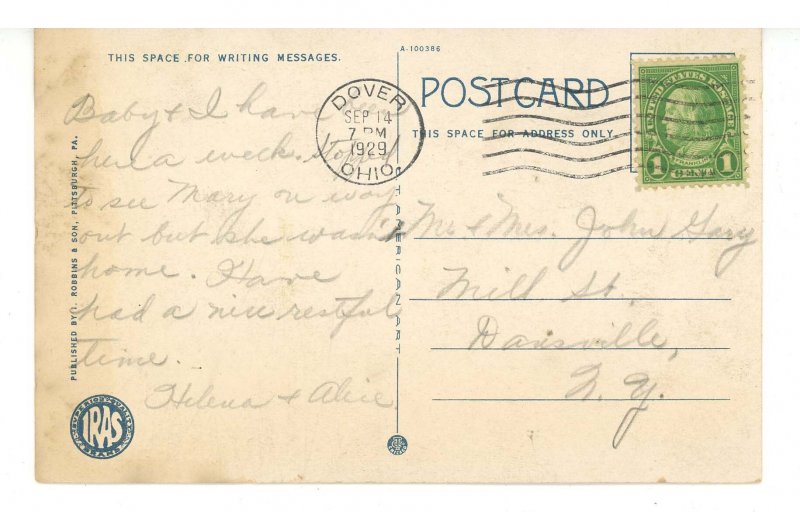 THIS SPACE FOR WRITING MESSAGES.
A-100386
POSTCARD
THIS SPACE FOR ADDRESS ONLY.
DOVER
SEP 14
7 PM
1929
OHIO
UNITED STATES POSTAGE
FRANKLIN
1 CENT 1
Baby & I have been
here a week. Stopped
to see Mary on way
out but she wasn't
home. Have
had a nice restful
time.
Helena & Alice.
Mr. & Mrs. John Gary
Mill St.
Dansville,
N. Y.
PUBLISHED BY I. ROBBINS & SON, PITTSBURGH, PA.
IRAS
BRAND
AMERICAN ART